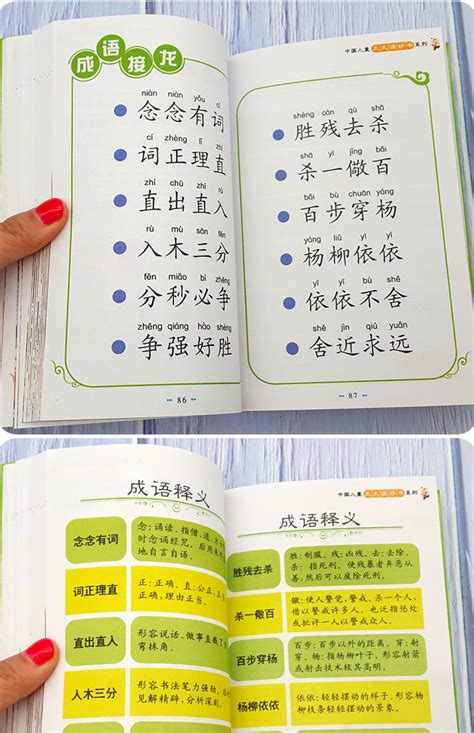 成语接龙
niàn niàn yǒu cí
念念有词
cí zhèng lǐ
词正理直
zhí chū zhí
直出直入
rù mù sān
入木三分
fēn miǎo bì
分秒必争
zhēng qiáng hào shèng
争强好胜
86
中国儿童天天读好书系列
shèng cán qù shā
胜残去杀
shā yī jǐng bǎi
杀一儆百
bǎi bù chuān yáng
百步穿杨
yáng liǔ yī yī
杨柳依依
yī yī bù shě
依依不舍
shě jìn qiú yuǎn
舍近求远
87
成语释义
念念有词
念：诵读，指僧、道、方
时念诵经咒。后
地自言自语。
词正理直
正：正确。直：公正、正
正确，理由正当。
直出直入
形容说话、做事直截了
弯抹角。
入木三分
形容书法笔力强劲，
见解精辟，分析深刻。
中国儿童天天读好书系列
成语释义
胜残去杀
胜：制服。残：凶残。去：去除。
杀：指死刑。使残暴者弃恶从
善，然后可以废除死刑。
杀一儆百
儆：使人警觉，不犯过错。杀一个人，
借以警戒许多人。也泛指惩处
或批评一人以警戒大众。
百步穿杨
百步：百步以外的距离。穿：射
穿。杨：指杨柳叶子。形容射箭
或射击技术极其高明。
杨柳依依
依依：轻轻摆动的样子。形容杨
柳枝条轻轻摆动的景象。